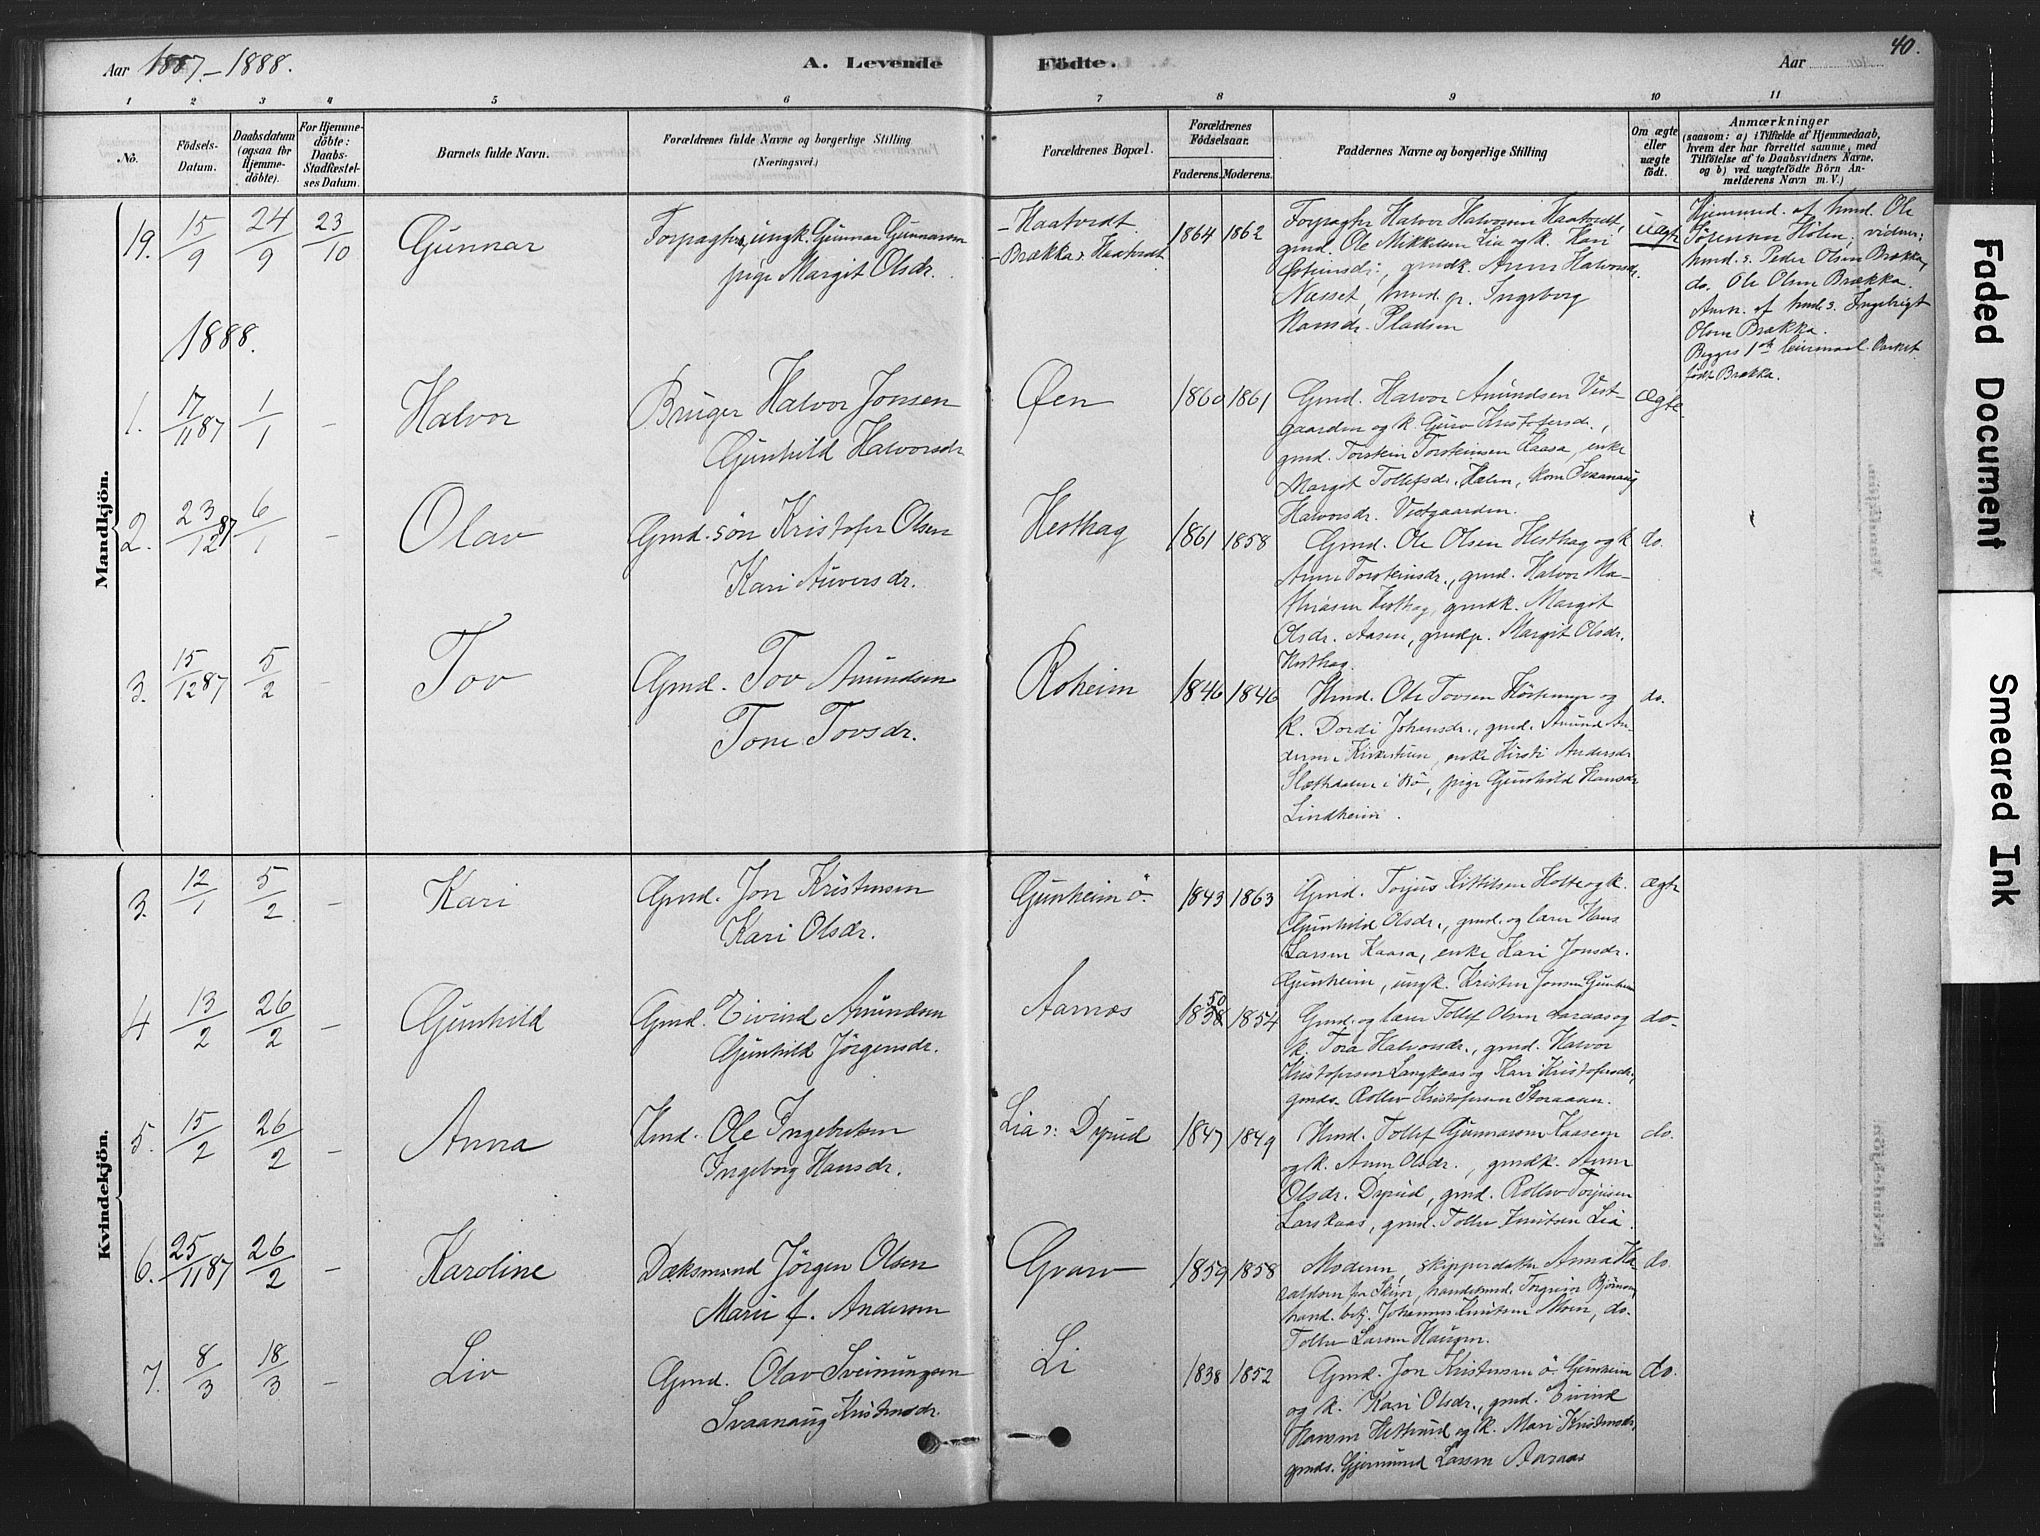 Aar 1887-1888.
A. Levende Födte.
Aar
40.
1 2 3 4 5 6 7 8 9 10 11
No.
Födsels-Datum.
Daabsdatum (ogsaa for Hjemme-döbte).
For Hjemme-döbte: Daabs-Stadfæstel-ses Datum.
Barnets fulde Navn.
Forældrenes fulde Navne og borgerlige Stilling
(Næringsvei.)
Forældrenes Bopæl.
Forældrenes Födselsaar.
Faderens. Moderens.
Faddernes Navne og borgerlige Stilling
Om ægte eller uægte födt.
Anmærkninger
(saasom: a) i Tilfælde af Hjemmedaab,
hvem der har forrettet samme, med
Tilföielse af to Daabsvidners Navne,
og b) ved uægtefödte Börn An-
melderens Navn m. V.)
Mandkjön.
19. 15/9 24/9 23/10 Gunnar
Forpagter, ungk. Gunnar Gunnarsen
pige Margit Olsdr.
- Haatvedt
- Brækka s. Haatvedt
1864 1862
Forpagter Halvor Halvorsen Haatvedt,
gmd. Ole Mikkelsen Lia og k. Kari
gmdk. Anne Halvorsdr.
Næsset, hmd. p. Ingeborg
Hansdr. Pladsen
uægte
Hjemmed. af hmd. Ole
Sörensen Holen; vidner:
hmd. s. Peder Olsen Brækka,
do. Ole Olsen Brækka.
Anm. af hmd s. Ingebrigt
Olsen Brækka.
Begges 1ste leiermaal. Barnet
født Brækka.
1888.
1. 17/11 87 1/1 - Halvor
Bruger Halvor Jonsen
Gunhild Halvorsdr
Øen
1860 1861
Gmd. Halvor Amundsen Vest-
gaarden og k. Guro Kristofersdr.,
gmd. Torstein Torsteinsen Kaasa, enke
Margit Tollefsdr. Hølen, kone Svanaug
Halvorsdr. Vestgaarden.
ægte
2. 23/12 87 6/1 - Olav
Gmd. søn Kristofer Olsen
Kari Auversdr.
Hesthag
1861 1858
Gmd. Ole Olsen Hesthag og k
Anne Torsteinsdr., gmd. Halvor Ma-
thiasen Hesthag, gmdk. Margit
Olsdr. Aasen, gmdp. Margit Olsdr.
Hesthag.
do.
3. 15/12 87 5/2 - Tov
Gmd. Tov Amundsen
Tone Tovsdr.
Roheim
1846 1846
Hmd. Ole Tovsen
og
k. Dordi Johansdr., gmd. Amund An-
dersen Kirkestuen, enke Kirsti Andersdr
i Bø, pige Gunhild Hansdr
Lindheim.
do.
Kvindekjön.
3. 12/1 5/2 - Kari
Gmd. Jon Kristensen
Kari Olsdr.
Gunheim ö.
1843 1863
Gmd. Torjus Kittilsen Holte og k.
Gunhild Olsdr., gmd. og lærer Hans
Larsen Kaasa, enke Kari Jonsdr.
Gunheim, ungk. Kristen Jonsen Gunheim
ægte
4. 13/2 26/2 - Gunhild
Gmd. Eivind Amundsen
Gunhild Jörgensdr.
Aarnes
1850 1854
Gmd. og lærer Tollef Olsen Aaraas og
k. Tora Halvorsdr., gmd. Halvor
Kristofersen Langkaas og Kari Kristofersdr.,
gmds. Rollev Kristofersen Storaasen.
do-
5. 15/2 26/2 - Anna
Hmd. Ole Ingebretsen
Ingeborg Hansdr.
Lia s: Dyrud
1847 1849
Hmd. Tollef Gunnarsen Kaasen
og k. Anne Olsdr., gmdk. Anne
Olsdr. Dyrud, gmd. Rollev Torjusen
Larskaas, gmd. Tollev Knutsen Lia.
do.
6. 25/11 87 26/2 - Karoline
Dæksmand Jörgen Olsen
Marie f. Andersen
Grav
1859 1858
Moderen, skipperdatter Anna Ha-
raldsen fra Skien, handelsmd. Ingvar Björnsen,
hand. betj. Johannes Knutsen Moen, do.
Tollev Larsen Haugen.
do.
7. 8/3 18/3 - Liv
Gmd. Olav Sveinungsen
Svaanaug Kristensdr.
Li
1838 1852
Gmd. Jon Kristensen ö. Gunheim
og k. Kari Olsdr., gmd. Eivind
Hansen Hettrud og k. Mari Kristensdr,
gmds. Gjermund Larsen Aaraas
do.
Faded Document
Smeared Ink